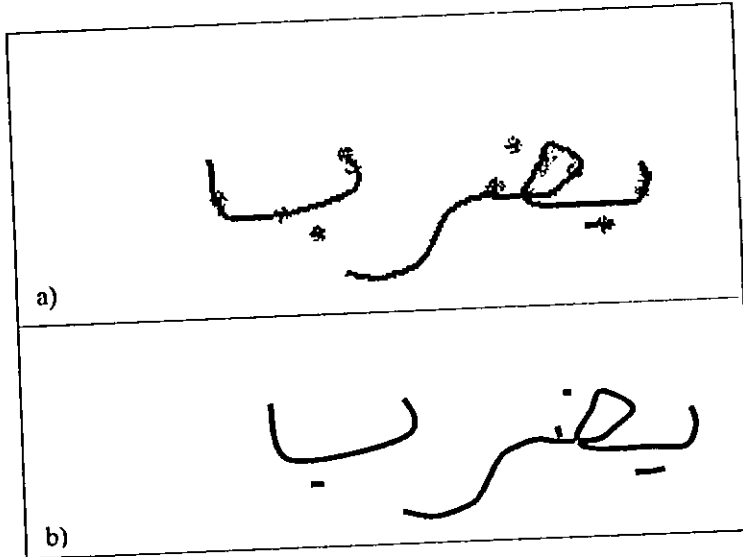 يضرب
a)
يضرب
b)